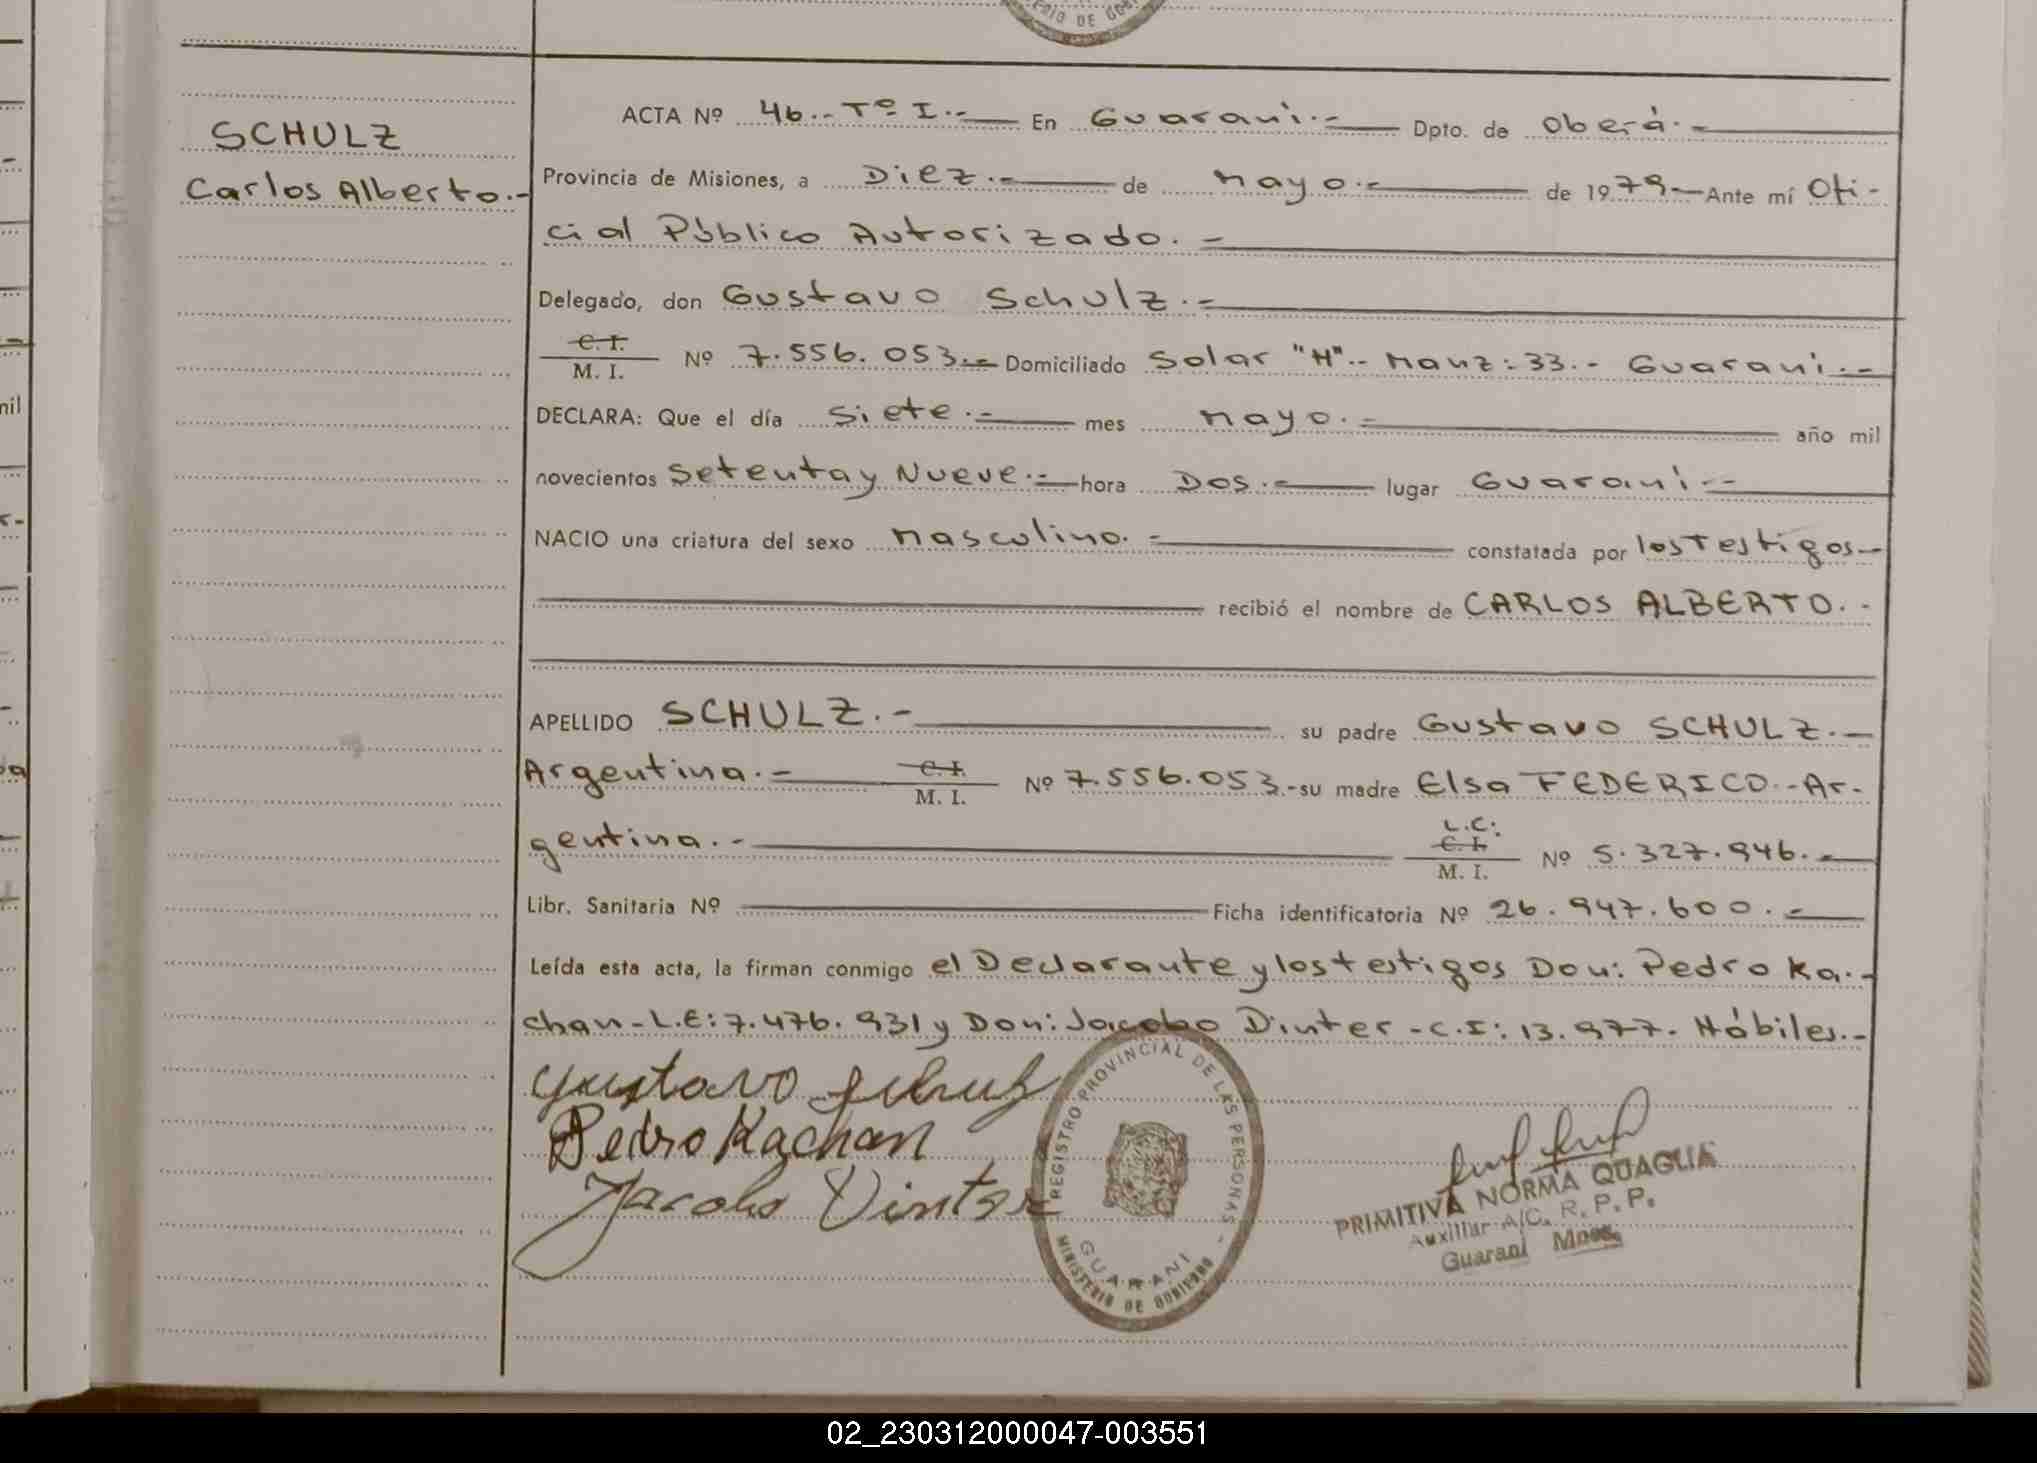 SCHULZ
Carlos Alberto.-
ACTA Nº 46.- Tº I.- En Guaraní.- Dpto. de Oberá.-
Provincia de Misiones, a Diez.- de Mayo.- de 1979.- Ante mí Ofi-
cial Público Autorizado.-
Delegado, don Gustavo Schulz.-
C. I.
M. I. Nº 7.556.053.- Domiciliado Solar "H".- Manz: 33.- Guaraní.-
DECLARA: Que el día Siete.- mes Mayo.- año mil
novecientos Setenta y Nueve.- hora Dos.- lugar Guaraní.-
NACIO una criatura del sexo Masculino.- constatada por los Testigos-
recibió el nombre de CARLOS ALBERTO.-
APELLIDO SCHULZ.- su padre Gustavo SCHULZ.-
Argentina.- C. I.
M. I. Nº 7.556.053.- su madre Elsa FEDERICO.- Ar-
gentina.- L.C:
C. I.
M. I. Nº 5.327.946.-
Libr. Sanitaria Nº Ficha identificatoria Nº 26.947.600.-
Leída esta acta, la firman conmigo el Declarante y los testigos Don: Pedro Ka-
chan- L.E: 7.476.931 y Don: Jacobo Dinter - C.I: 13.977. Hábiles.-
Gustavo Schulz
Pedro Kachan
Jacobo Dinter
REGISTRO PROVINCIAL DE LAS PERSONAS -
GUARANI
MINISTERIO DE GOBIERNO
PRIMITIVA NORMA QUAGLIA
Auxiliar A/C. R. P. P.
Guaraní Mnes.
02_230312000047-003551